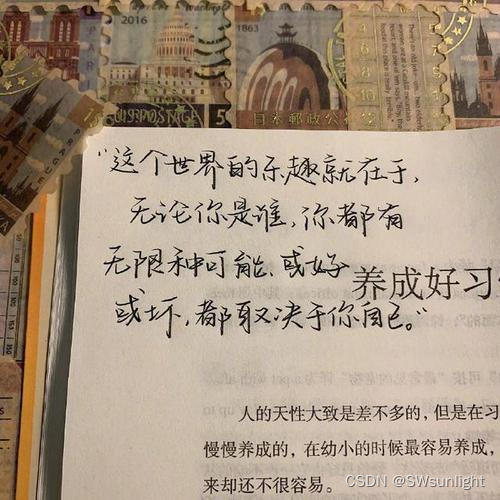 2016
1863
US POSTAGE 5
日本郵政公
PRAGUE
“这个世界的乐趣就在于,
无论你是谁,你都有
无限种可能、或好
或坏,都取决于你自己。”
养成好习
人的天性大致是差不多的,但是在习
慢慢养成的,在幼小的时候最容易养成,
来却还不很容易。
CSDN @SWsunlight